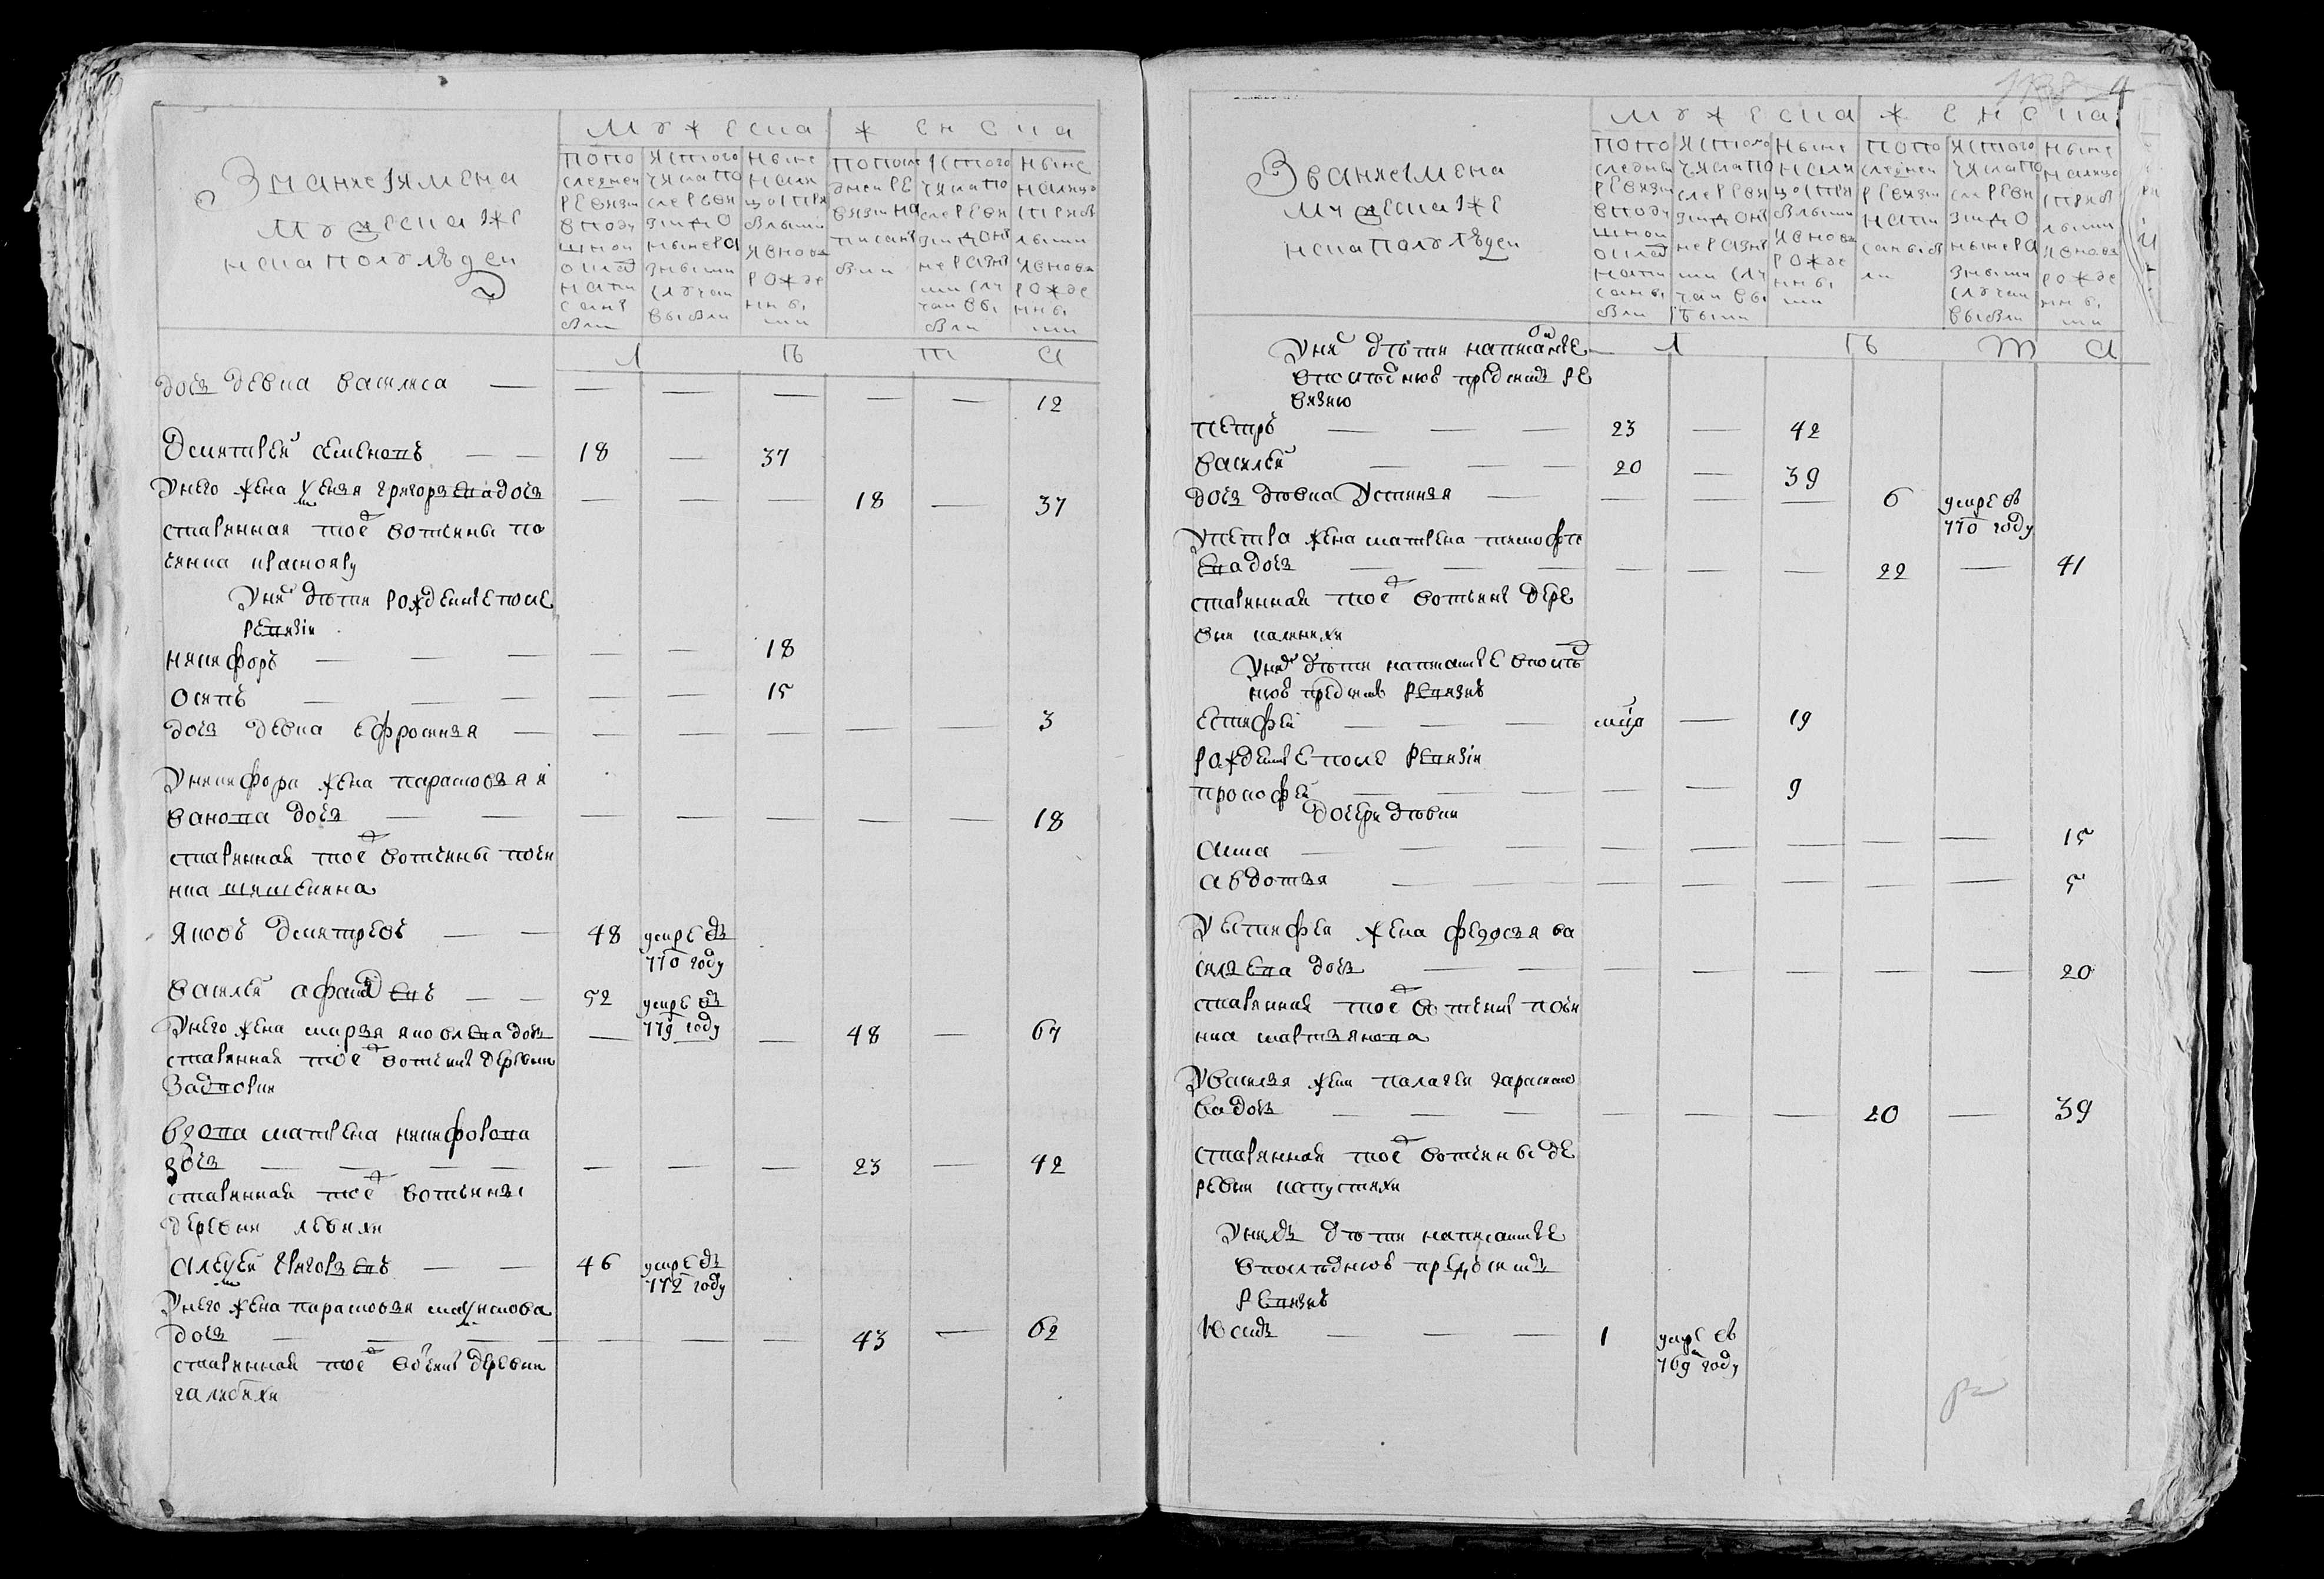 Звание Iимена
Мужеска Iже
нска полу людеи
Мужеска
женска
попо
следнеи
ревизии
вподу
шнои
оклад
напи
саны
были
Iстого
числапо
слеревi
зиидо
нынера
зныыми
случаи
выбыли
Ныне
нали
цоIпри
былыми
iвновь
рожде
нны
ми
попосле
днеи ре
визии на
писаны
были
Iстого
числапо
слереви
зиидоны
неразны
ми слу
чаи вы
были
Ныне
налицо
Iприбы
лыми
iвновь
рожде
нны
ми
Л Ѣ Т А
дочь девка василиса — — — — — — 12
Дмитреи семеновъ — — 18 — 37
Унего жена ксенья григорьева дочь — — — 18 — 37
старинная тоеж вотчины по
чинка краснояру
Уних дѣти рожденные после
ревизiи
никифоръ — — — — — 18
осипъ — — — — — 15
дочь девка ефросинья — — — — — — 3
Уникифора жена парасковья и
ванова дочь — — — — — — — 18
старинная тоеж вотчины почи
нка шишкина
яковъ дмитреевъ — — 48 умре въ
770 году
василеи афанасьевъ — — 52 умре въ
779 году
Унего жена марья яковлева дочь — — 48 — 67
старинная тоеж вотчины деревни
вдова матрена никифорова
дочь — — — — — — — 23 — 42
старинная тоеж вотчины
деревни
алексеи григорьевъ — — 46 умре въ
772 году
Унего жена парасковья максимова
дочь — — — — — — — 43 — 62
старинная тоеж вотчины деревни
галибихи
4
Звание Iмена
Мужеска Iже
нска полу людеи
Мужеска
женска
попо
следнеи
ревизии
вподу
шнои
оклад
напи
саны
были
Iстого
числапо
слереви
зиидоны
неразны
ми слу
чаи вы
были
Ныне
нали
цоIпри
былыми
iвновь
рожде
нны
ми
попо
следнеи
ревизии
напи
саны бы
ли
Iстого
числапо
слереви
зиидо
нынера
зныыми
случаи
выбыли
Ныне
налицо
Iприбы
лыми
iвновь
рожде
нны
ми
Л Ѣ Т А
Уней дѣти написанные
впоследнюю предсимъ ре
визию
петръ — — — 23 — 42
василеи — — — 20 — 39
дочь дѣвка устинья — — — — 6 умре въ
770 году
Упетра жена матрена тимофѣ
ева дочь — — — — — — 22 — 41
старинная тоеж вотчины дере
вни
Уних дѣти написанные впослѣд
нюю предсимъ ревизию
естифеи — — — — 19
рожденные после ревизiи
прокофеи — — — — — 9
дочери дѣвки
анна — — — — — — — — 15
авдотья — — — — — — — 5
Уестифея жена федосья ва
сильева дочь — — — — — — — 20
старинная тоеж вотчины почи
нка мартьянова
Увасилья жена палагея гарасимо
ва дочь — — — — — — 20 — 39
старинная тоеж вотчины де
ревни капустихи
Унихъ дѣти написанные
впоследнюю предсимъ
ревизию
— — — 1 умре въ
769 году